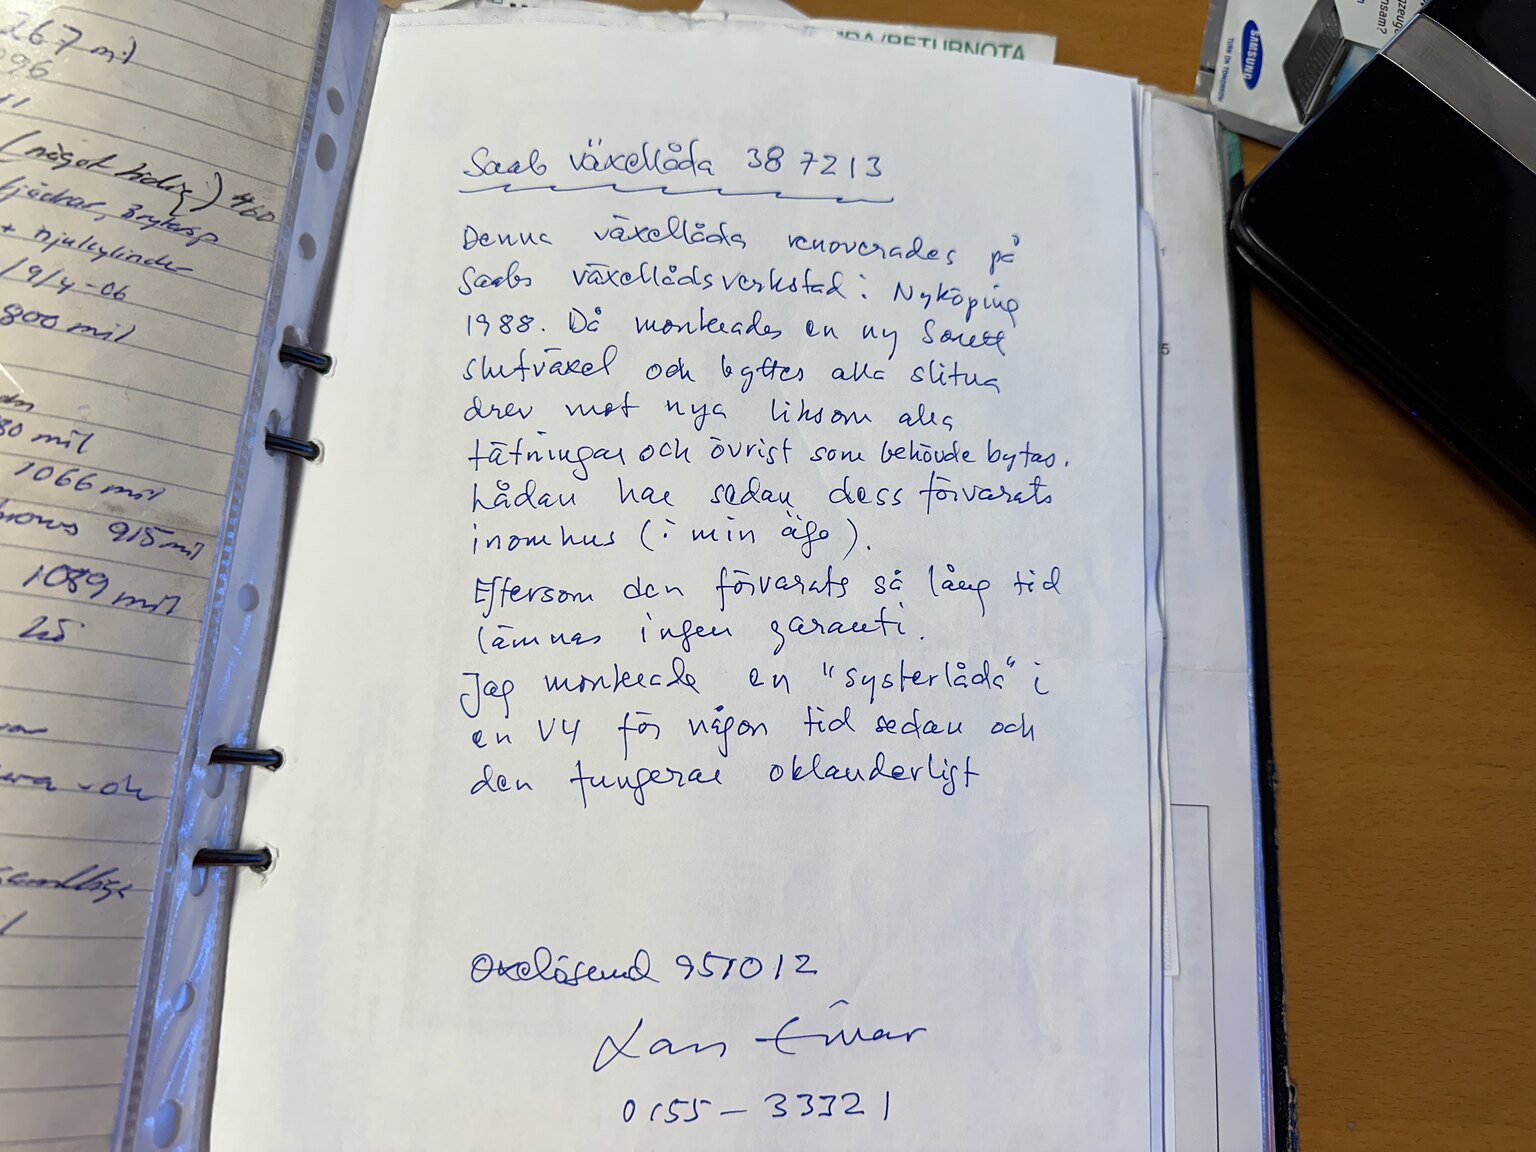 267 mil
096
11
(något tidig) 4/60
+ hjulcylinder
19/4-06
800 mil
80 mil
1066 mil
915 mil
1089 mil
25
RETURNOTA
SAMSUNG
TURN ON TOMORROW
Saab växellåda 387213
Denna växellåda renoverades på
Saabs växellådsverkstad i Nyköping
1988. Då monterades en ny Sonett
slutväxel och byttes alla slitna
drev mot nya liksom alla
tätningar och övrigt som behövde bytas.
Lådan har sedan dess förvarats
inomhus (i min ägo).
Eftersom den förvarats så lång tid
lämnas ingen garanti.
Jag monterade en "systerlåda" i
en V4 för någon tid sedan och
den fungerar oklanderligt
Oxelösund 951012
Lars
0155-33321
5